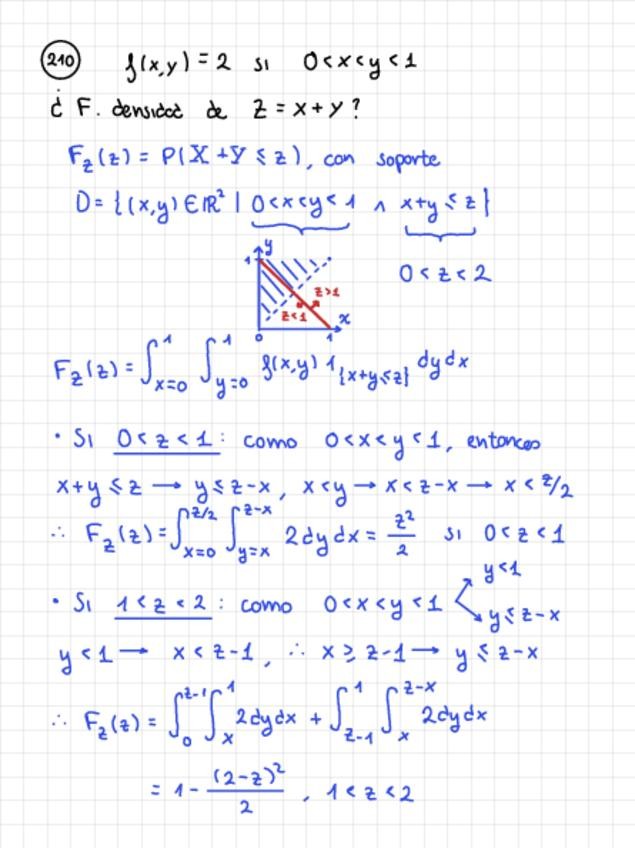 210 f(x,y) = 2 si 0<x<y<1
¿ F. densidad de Z = x+y ?
F_Z(z) = P(X+Y ≤ z), con soporte
D = {(x,y) ∈ ℝ² | 0<x<y<1 ∧ x+y ≤ z}
0 < z < 2
y
1
z>1
z<1
x
0 1
F_Z(z) = ∫_{x=0}^{1} ∫_{y=0}^{1} f(x,y) 1_{{x+y≤z}} dy dx
• Si 0<z<1: como 0<x<y<1, entonces
x+y ≤ z → y ≤ z-x, x<y → x<z-x → x<z/2
∴ F_Z(z) = ∫_{x=0}^{z/2} ∫_{y=x}^{z-x} 2 dy dx = z²/2 si 0<z<1
• Si 1<z<2: como 0<x<y<1 y<1
y ≤ z-x
y<1 → x<z-1, ∴ x ≥ z-1 → y ≤ z-x
∴ F_Z(z) = ∫_{0}^{z-1} ∫_{x}^{1} 2dydx + ∫_{z-1}^{1} ∫_{x}^{z-x} 2dydx
= 1 - (2-z)²/2, 1<z<2